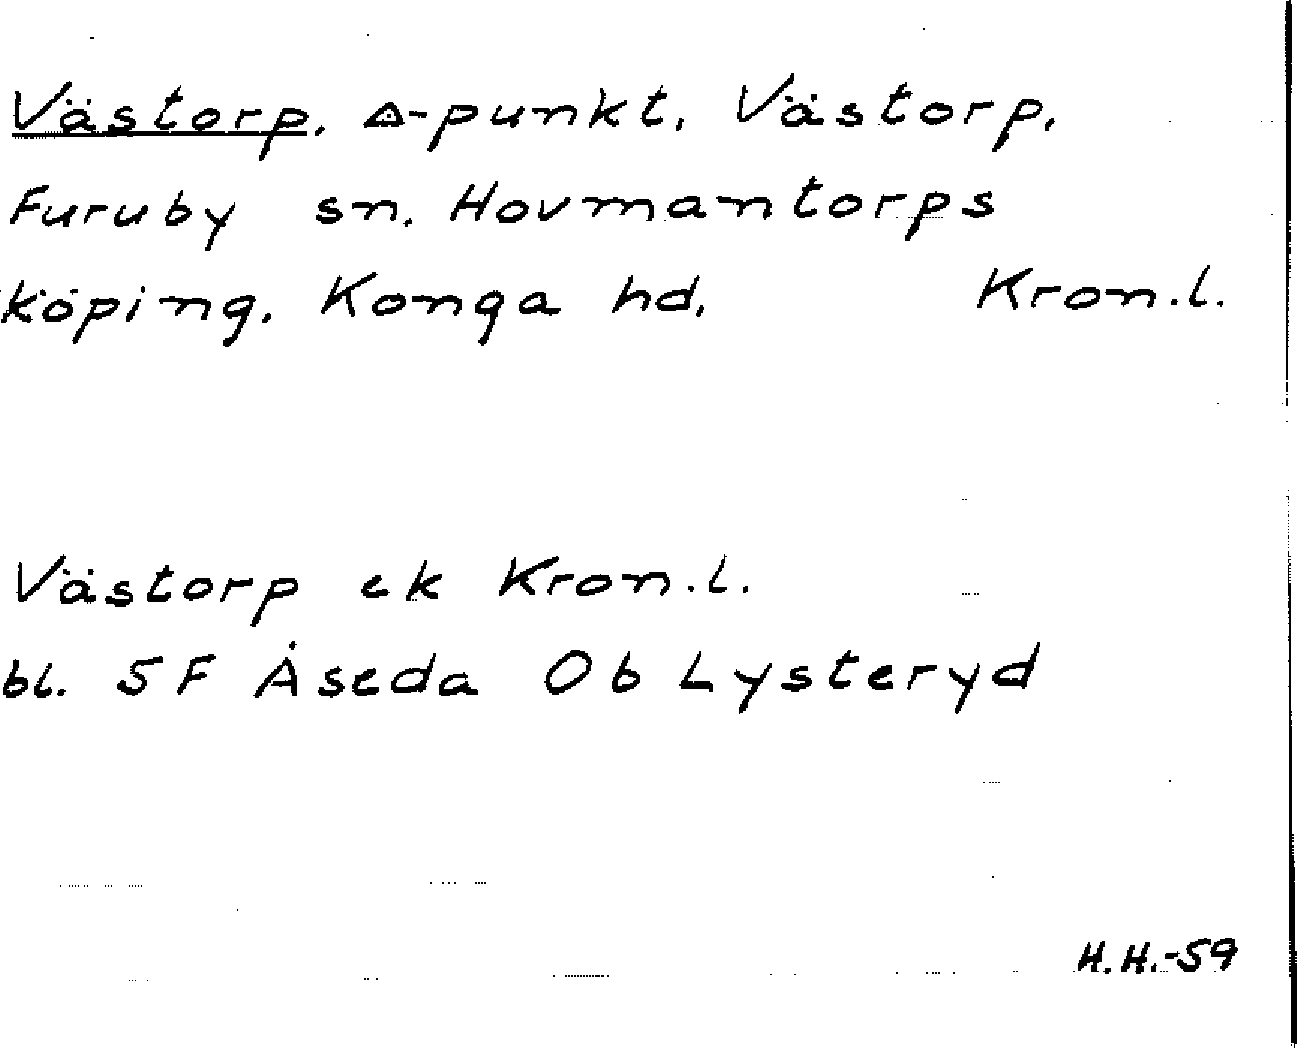 Västorp, △-punkt, Västorp,
Furuby sn, Hovmantorps
köping, Konga hd, Kron.l.
Västorp ek Kron.l.
bl. 5F Åseda 0b Lysteryd
H.H.-59